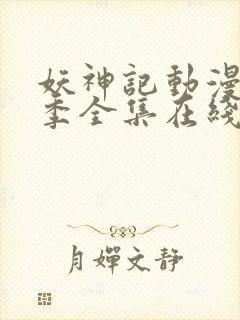 妖神記動漫
季全集在綫
月嬋文靜